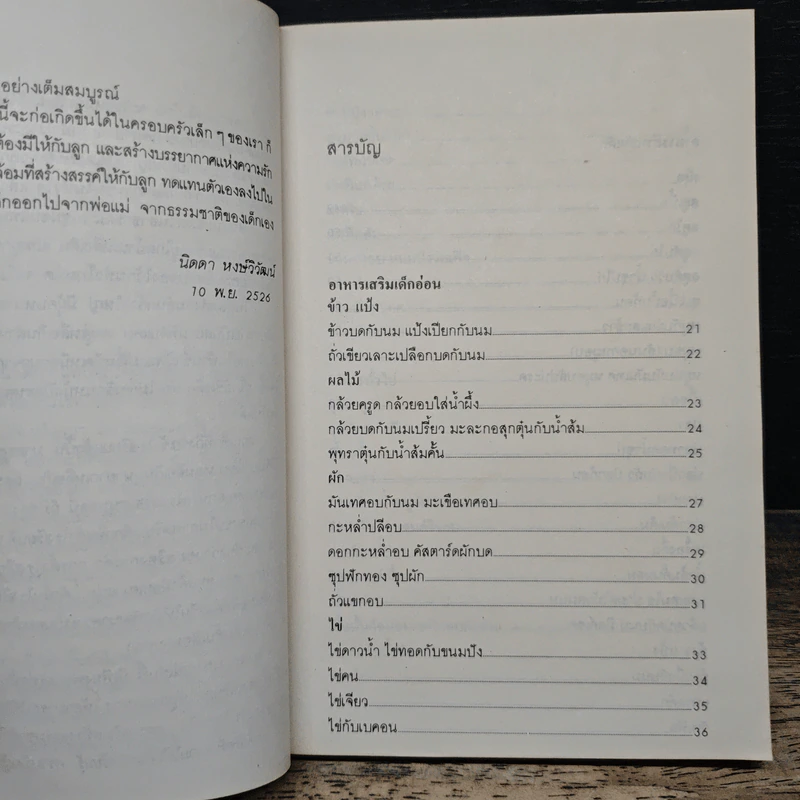 อย่างเต็มสมบูรณ์
นี้จะก่อเกิดขึ้นได้ในครอบครัวเล็ก ๆ ของเรา ก็
ต้องมีให้กับลูก และสร้างบรรยากาศแห่งความรัก
ล้อมที่สร้างสรรค์ให้กับลูก ทดแทนตัวเองลงไปใน
ออกไปจากพ่อแม่ จากธรรมชาติของเด็กเอง
นิดดา หงษ์วิวัฒน์
10 พ.ย. 2526
สารบัญ
อาหารเสริมเด็กอ่อน
ข้าว แป้ง
ข้าวบดกับนม แป้งเปียกกับนม 21
ถั่วเขียวเลาะเปลือกบดกับนม 22
ผลไม้
กล้วยครูด กล้วยอบใส่น้ำผึ้ง 23
กล้วยบดกับนมเปรี้ยว มะละกอสุกตุ๋นกับน้ำส้ม 24
พุทราตุ๋นกับน้ำส้มคั้น 25
ผัก
มันเทศอบกับนม มะเขือเทศอบ 27
กะหล่ำปลีอบ 28
ดอกกะหล่ำอบ คัสตาร์ดผักบด 29
ซุปฟักทอง ซุปผัก 30
ถั่วแขกอบ 31
ไข่
ไข่ดาวน้ำ ไข่ทอดกับขนมปัง 33
ไข่คน 34
ไข่เจียว 35
ไข่กับเบคอน 36